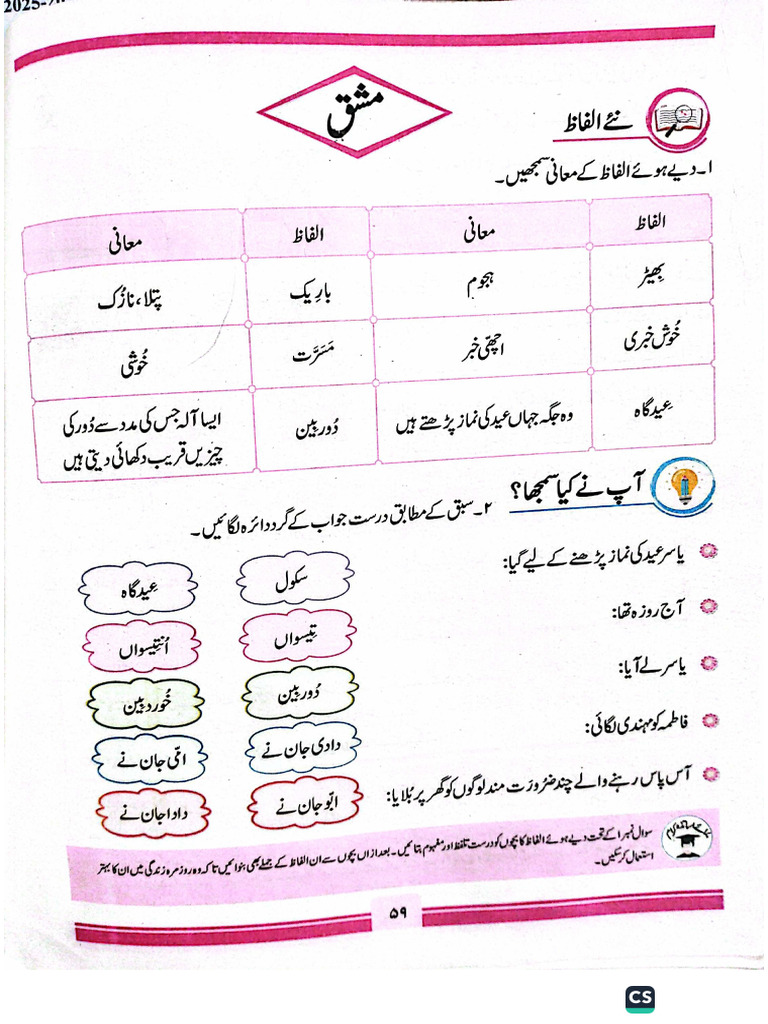 2025-
مشق
نئے الفاظ
۱۔ دیے ہوئے الفاظ کے معانی سمجھیں۔
الفاظ معانی الفاظ معانی
بِھیڑ ہجوم بارِیک پتلا، نازُک
خُوش خبری اچھّی خبر مَسَرَّت خُوشی
عِیدگاہ وہ جگہ جہاں عید کی نماز پڑھتے ہیں دُوربِین ایسا آلہ جس کی مدد سے دُور کی
چیزیں قریب دکھائی دیتی ہیں
آپ نے کیا سمجھا؟
۲۔ سبق کے مطابق درست جواب کے گرد دائرہ لگائیں۔
یاسر عید کی نماز پڑھنے کے لیے گیا: سکول عِیدگاہ
آج روزہ تھا: تِیسواں اُنتِیسواں
یاسر لے آیا: دُوربِین خُوردبِین
فاطمہ کو مہندی لگائی: دادی جان نے امّی جان نے
آس پاس رہنے والے چند ضرُورَت مند لوگوں کو گھر پر بُلایا: ابّو جان نے دادا جان نے
سوال نمبر ۱ کے تحت دیے ہوئے الفاظ کا بچّوں کو درست تلفظ اور مفہوم بتائیں۔ بعد ازاں بچّوں سے ان الفاظ کے جملے بھی بنوائیں تاکہ وہ روز مرہ زندگی میں ان کا بہتر
استعمال کر سکیں۔
۵۹
CS